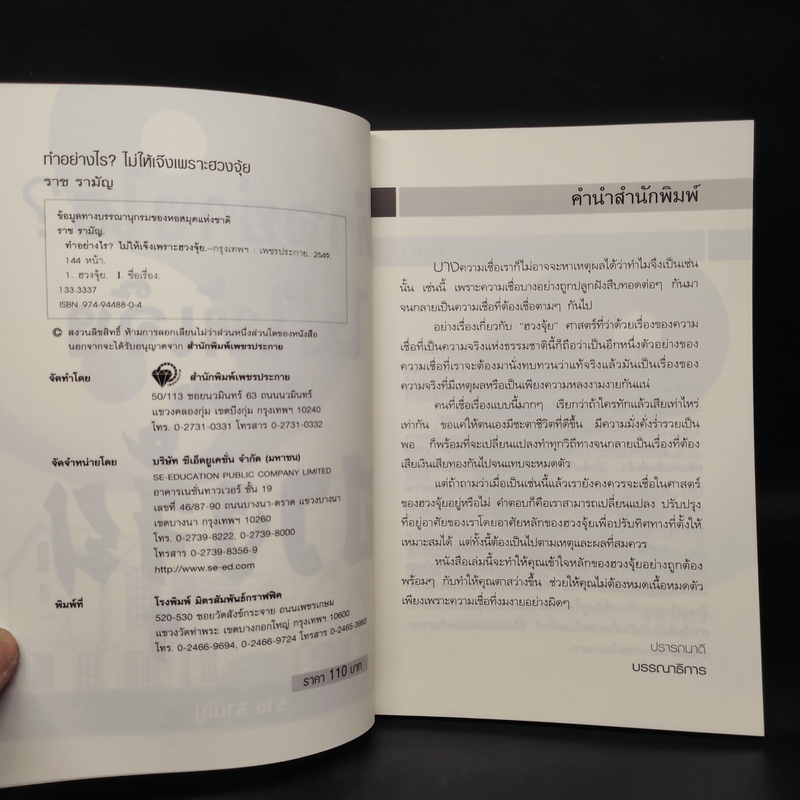 ทำอย่างไร? ไม่ให้เจ๊งเพราะฮวงจุ้ย
ราช รามัญ
ข้อมูลทางบรรณานุกรมของหอสมุดแห่งชาติ
ราช รามัญ.
ทำอย่างไร? ไม่ให้เจ๊งเพราะฮวงจุ้ย.--กรุงเทพฯ : เพชรประกาย, 2549.
144 หน้า.
1. ฮวงจุ้ย. I. ชื่อเรื่อง.
133.3337
ISBN 974-94488-0-4
© สงวนลิขสิทธิ์ ห้ามการลอกเลียนไม่ว่าส่วนหนึ่งส่วนใดของหนังสือ
นอกจากจะได้รับอนุญาตจาก สำนักพิมพ์เพชรประกาย
จัดทำโดย สำนักพิมพ์เพชรประกาย
50/113 ซอยนวมินทร์ 63 ถนนนวมินทร์
แขวงคลองกุ่ม เขตบึงกุ่ม กรุงเทพฯ 10240
โทร. 0-2731-0331 โทรสาร 0-2731-0332
จัดจำหน่ายโดย บริษัท ซีเอ็ดยูเคชั่น จำกัด (มหาชน)
SE-EDUCATION PUBLIC COMPANY LIMITED
อาคารเนชั่นทาวเวอร์ ชั้น 19
เลขที่ 46/87-90 ถนนบางนา-ตราด แขวงบางนา
เขตบางนา กรุงเทพฯ 10260
โทร. 0-2739-8222, 0-2739-8000
โทรสาร 0-2739-8356-9
http://www.se-ed.com
พิมพ์ที่ โรงพิมพ์ มิตรสัมพันธ์กราฟฟิค
520-530 ซอยวัดสังข์กระจาย ถนนเพชรเกษม
แขวงวัดท่าพระ เขตบางกอกใหญ่ กรุงเทพฯ 10600
โทร. 0-2466-9694, 0-2466-9724 โทรสาร 0-2465-3993
ราคา 110 บาท
คำนำสำนักพิมพ์
บางความเชื่อเราก็ไม่อาจจะหาเหตุผลได้ว่าทำไมจึงเป็นเช่น
นั้น เช่นนี้ เพราะความเชื่อบางอย่างถูกปลูกฝังสืบทอดต่อๆ กันมา
จนกลายเป็นความเชื่อที่ต้องเชื่อตามๆ กันไป
อย่างเรื่องเกี่ยวกับ "ฮวงจุ้ย" ศาสตร์ที่ว่าด้วยเรื่องของความ
เชื่อที่เป็นความจริงแห่งธรรมชาตินี้ก็ถือว่าเป็นอีกหนึ่งตัวอย่างของ
ความเชื่อที่เราจะต้องมานั่งทบทวนว่าแท้จริงแล้วมันเป็นเรื่องของ
ความจริงที่มีเหตุผลหรือเป็นเพียงความหลงงามงายกันแน่
คนที่เชื่อเรื่องแบบนี้มากๆ เรียกว่าถ้าใครทักแล้วเสียเท่าไหร่
เท่ากัน ขอแค่ให้ตนเองมีชะตาชีวิตที่ดีขึ้น มีความมั่งคั่งร่ำรวยเป็น
พอ ก็พร้อมที่จะเปลี่ยนแปลงทำทุกวิถีทางจนกลายเป็นเรื่องที่ต้อง
เสียเงินเสียทองกันไปจนแทบจะหมดตัว
แต่ถ้าถามว่าเมื่อเป็นเช่นนี้แล้วเรายังคงควรจะเชื่อในศาสตร์
ของฮวงจุ้ยอยู่หรือไม่ คำตอบก็คือเราสามารถเปลี่ยนแปลง ปรับปรุง
ที่อยู่อาศัยของเราโดยอาศัยหลักของฮวงจุ้ยเพื่อปรับทิศทางที่ตั้งให้
เหมาะสมได้ แต่ทั้งนี้ต้องเป็นไปตามเหตุและผลที่สมควร
หนังสือเล่มนี้จะทำให้คุณเข้าใจหลักของฮวงจุ้ยอย่างถูกต้อง
พร้อมๆ กับทำให้คุณตาสว่างขึ้น ช่วยให้คุณไม่ต้องหมดเนื้อหมดตัว
เพียงเพราะความเชื่อที่งมงายอย่างผิดๆ
ปรารถนาดี
บรรณาธิการ